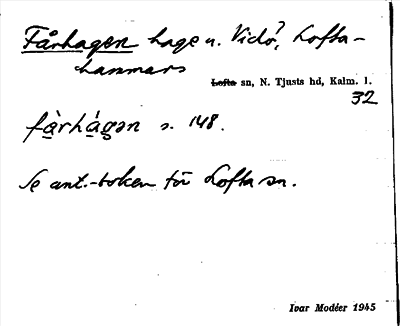 Fårhagen hage u. Vidö?, Lofta-
hammars
Lofta sn, N. Tjusts hd, Kalm. l.
32
fàrhágən s. 148.
Se ant.-boken för Lofta sn.
Ivar Modéer 1945